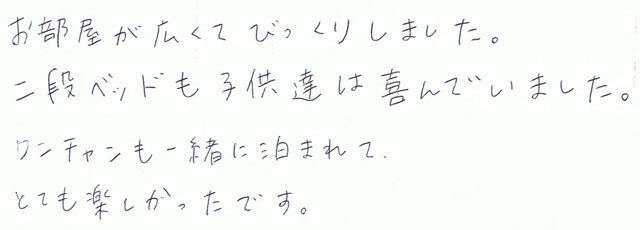 お部屋が広くてびっくりしました。
二段ベッドも子供達は喜んでいました。
ワンチャンも一緒に泊まれて.
とても楽しかったです。